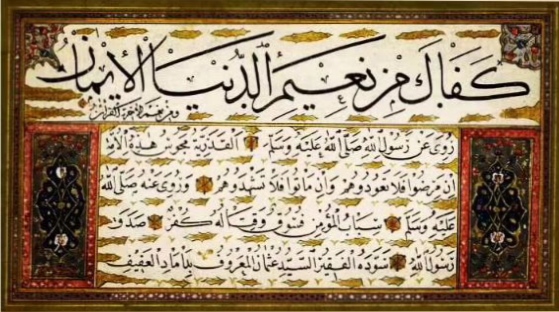 كفاك من نعيم الدنيا الإيمان
ومن نعيم الآخرة الغفران
روي عن رسول الله صلى الله عليه وسلم القدرية مجوس هذه الأمة
ان مرضوا فلا تعودوهم وان ماتوا فلا تشهدوهم وروي عنه صلى الله
عليه وسلم سباب المؤمن فسوق وقتاله كفر صدق
رسول الله سوده الفقير السيد عثمان المعروف بداماد العفيف